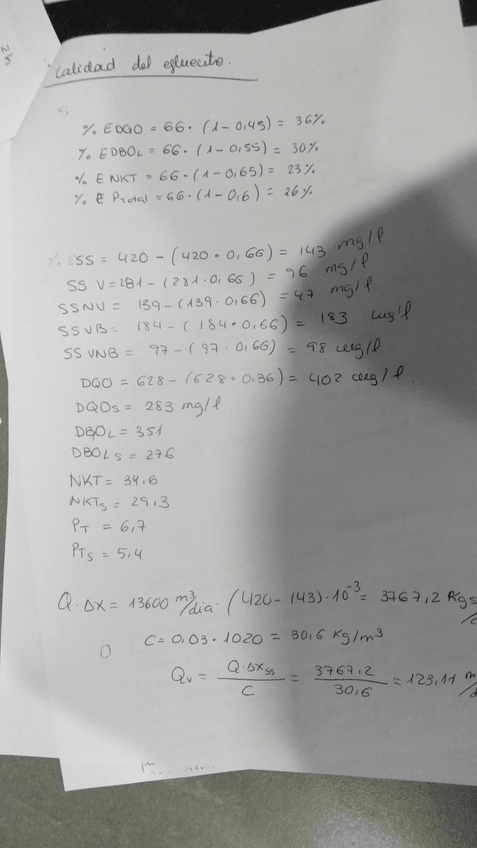 Calidad del efluente.
% EDQO = 66 · (1 - 0,45) = 36%
% EDBOL = 66 · (1 - 0,55) = 30%
% E NKT = 66 · (1 - 0,65) = 23%
% E PTotal = 66 · (1 - 0,6) = 26%
% ESS = 420 - (420 · 0,66) = 143 mg/l
SSV = 281 - (281 · 0,66) = 96 mg/l
SSNV = 139 - (139 · 0,66) = 47 mg/l
SSVB = 184 - (184 · 0,66) = 183 mg/l
SSVNB = 97 - (97 · 0,66) = 98 mg/l
DQO = 628 - (628 · 0,36) = 402 mg/l.
DQOs = 283 mg/l
DBOL = 351
DBOLs = 276
NKT = 34,6
NKTs = 29,3
PT = 6,7
PTs = 5,4
Q · ΔX = 13600 m³/dia · (420 - 143) · 10⁻³ = 3767,2 Kgs
C = 0,03 · 1020 = 30,6 Kg/m³
Qv = Q · ΔXss / C = 3767,2 / 30,6 = 123,11 m